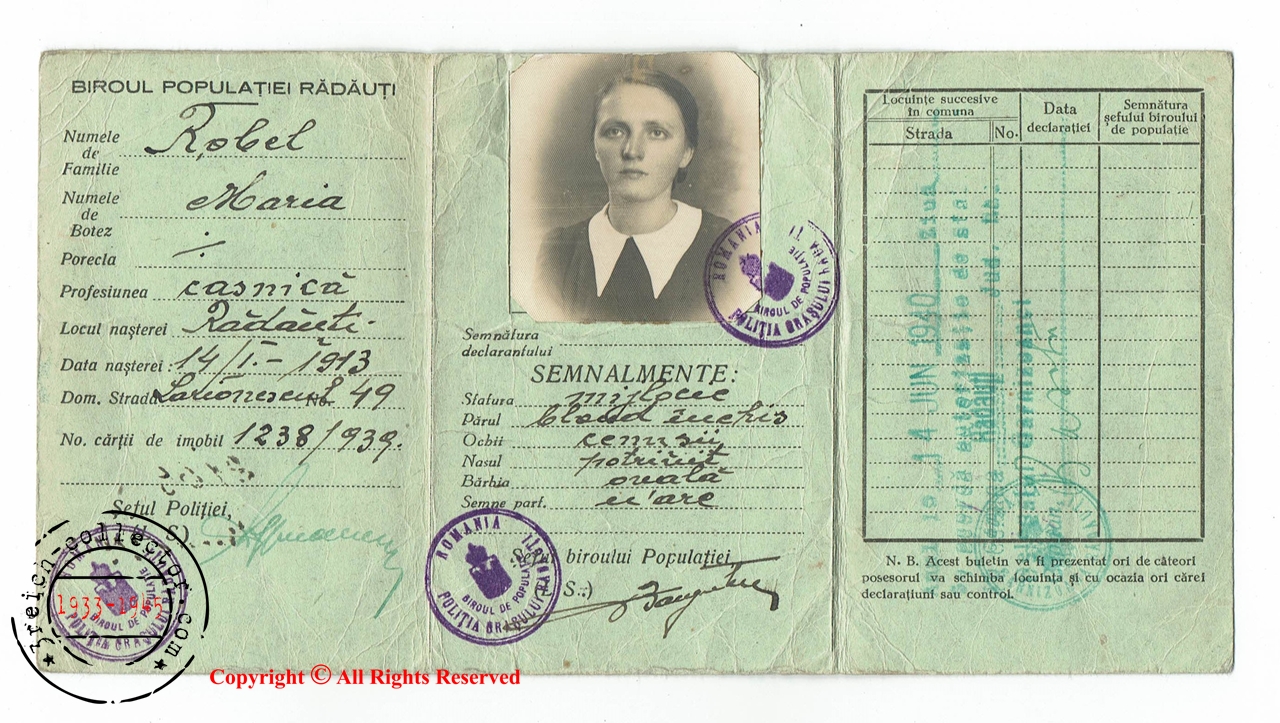 BIROUL POPULAȚIEI RĂDĂUȚI
Numele de Familie Robel
Numele de Botez Maria
Porecla ·/·
Profesiunea casnică
Locul nașterei Rădăuți
Data nașterei: 14/I.-1913
Dom. Strada No. 49
No. cărții de imobil 1238/939.
Șeful Poliției,
ROMANIA
BIROUL DE POPULAȚIE
POLIȚIA ORAȘULUI RĂDĂUȚI
3reich-collector.com
1933-1945
Copyright © All Rights Reserved
ROMANIA
BIROUL DE POPULAȚIE
POLIȚIA ORAȘULUI RĂDĂUȚI
Semnătura
declarantului
SEMNALMENTE:
Statura mijlocie
Părul blond închis
Ochii cenușii
Nasul potrivit
Bărbia ovală
Semne part. n'are
Șeful biroului Populației
(S.)
ROMANIA
BIROUL DE POPULAȚIE
POLIȚIA ORAȘULUI RĂDĂUȚI
Locuințe succesive în comuna
Strada No.
Data declarației
Semnătura șefului biroului de populație
14 JUN 1940
N. B. Acest buletin va fi prezentat ori de câteori
posesorul va schimba locuința și cu ocazia ori cărei
declarațiuni sau control.